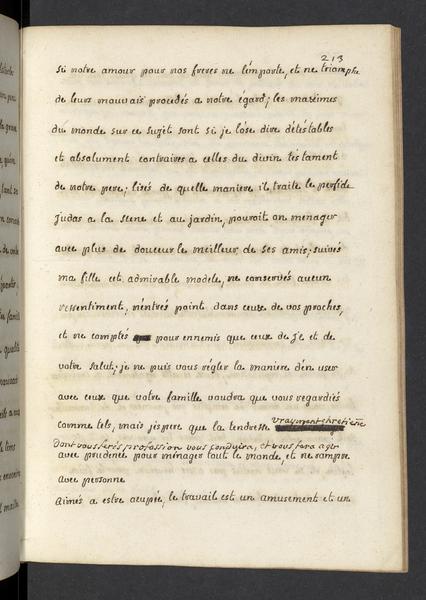 213
si notre amour pour nos freres ne l'emporte, et ne triomphe
de leurs mauvais procedés a notre égard; les maximes
du monde sur ce sujet sont si je lóse dire détéstables
et absolument contraires a celles du divin téstament
de notre pere; lisés de quelle maniere il traite le perfide
Judas a la scene et au jardin, pouroit on menager
avec plus de douceur le meilleur de ses amis; suivés
ma fille cet admirable modele, ne conservés aucun
ressentiment, n'entrés point dans ceux de vos proches,
et ne comptés pour ennemis que ceux de J.C et de
votre salut; je ne puis vous régler la maniere d'en user
avec ceux que votre famille voudra que vous regardiés
comme tels, mais j'espere que la tendresse vrayment chretiéne
dont vous ferés profession vous conduira, et vous fera agir
avec prudence pour ménager tout le monde, et ne rompre
avec personne
Aimés a estre ocupée, le travail est un amusement et un